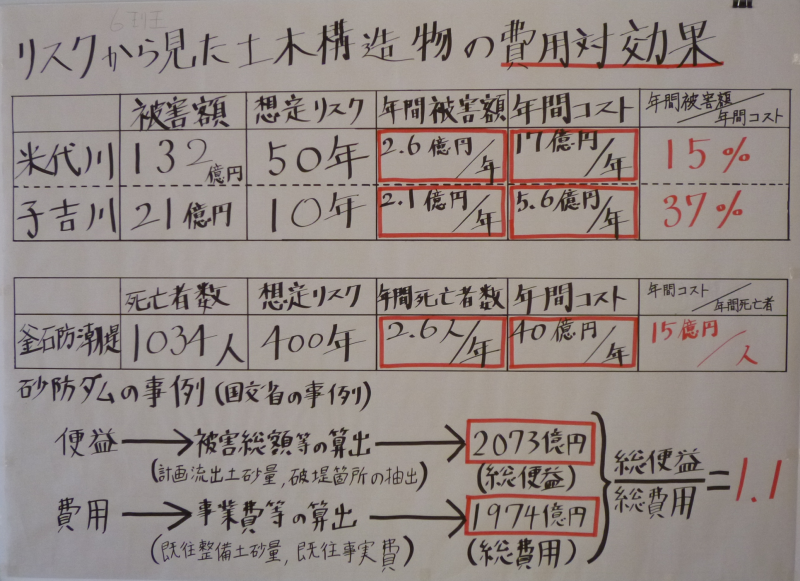 6班
リスクから見た土木構造物の費用対効果
被害額 想定リスク 年間被害額 年間コスト 年間被害額/年間コスト
米代川 132億円 50年 2.6億円/年 17億円/年 15%
子吉川 21億円 10年 2.1億円/年 5.6億円/年 37%
死亡者数 想定リスク 年間死亡者数 年間コスト 年間コスト/年間死亡者
釜石防潮堤 1034人 400年 2.6人/年 40億円/年 15億円/人
砂防ダムの事例(国交省の事例)
便益 → 被害総額等の算出 → 2073億円
(計画流出土砂量,破堤箇所の抽出) (総便益)
総便益/総費用=1.1
費用 → 事業費等の算出 → 1974億円
(既往整備土砂量,既往事実費) (総費用)